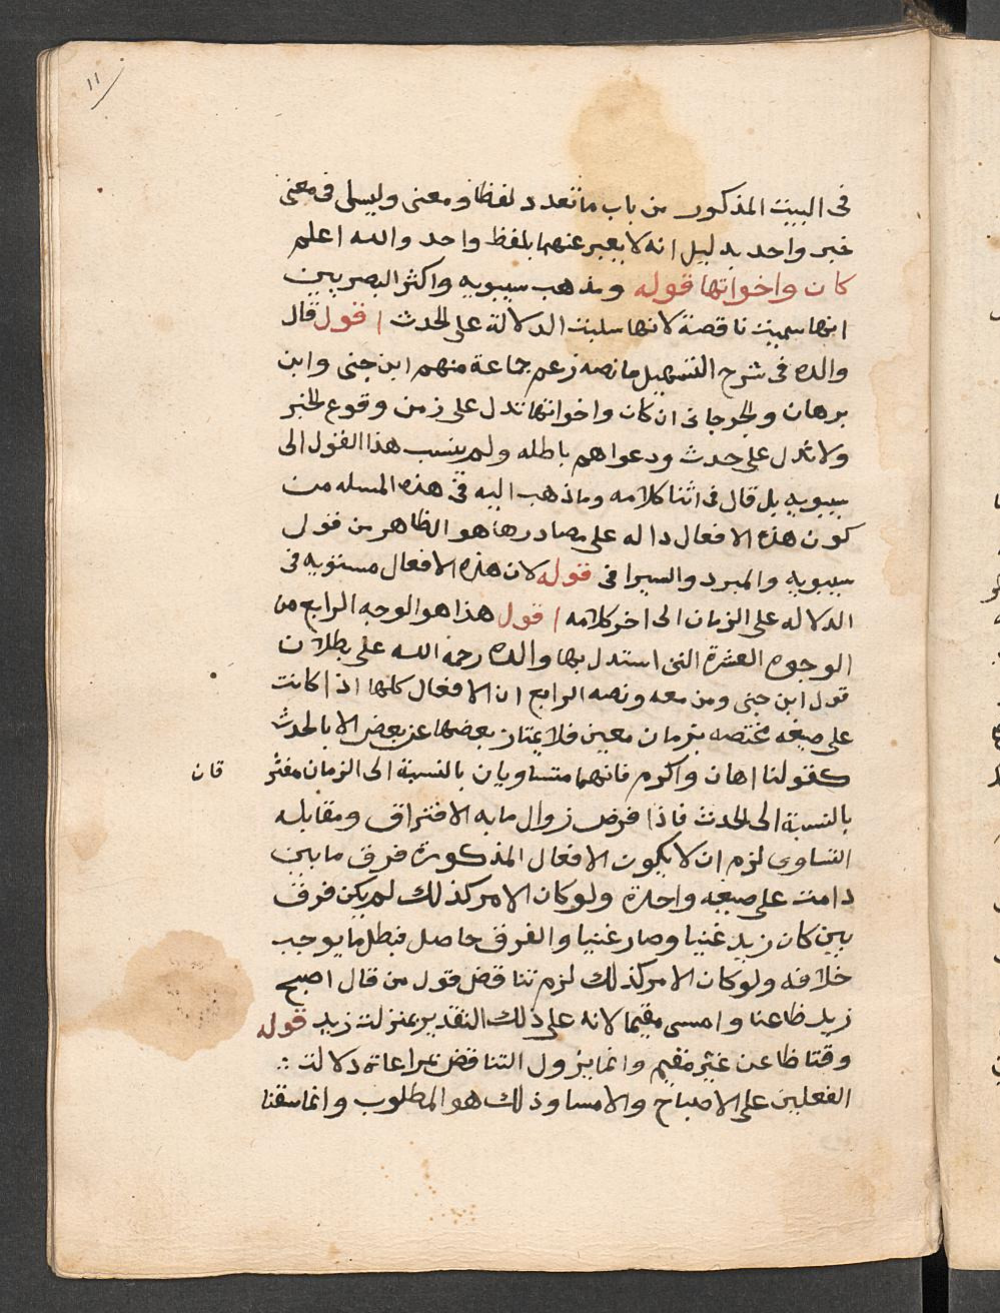 ١١
فى البيت المذكور من باب ما تعدد لفظا ومعنى وليسا فى معنى
خبر واحد بدليل انه لا يعبر عنهما بلفظ واحد والله اعلم
كان واخواتها قوله ومذهب سيبويه واكثر البصريين
انها سميت ناقصة لانها سلبت الدلالة على الحدث اقول قال
والده فى شرح التسهيل ما نصه زعم جماعة منهم ابن جنى وابن
برهان والجرجانى ان كان واخواتها تدل على زمن وقوع الخبر
ولا تدل على حدث ودعواهم باطله ولم ينسب هذا القول الى
سيبويه بل قال فى اثنا كلامه وما ذهب اليه فى هذه المسله من
كون هذه الافعال داله على مصادرها هو الظاهر من قول
سيبويه والمبرد والسيرافى قوله لان هذه الافعال مستويه فى
الدلاله على الزمان الى اخر كلامه اقول هذا هو الوجه الرابع من
الوجوه العشرة التى استدل بها والده رحمه الله على بطلان
قول ابن جنى ومن معه ونصه الرابع ان الافعال كلها اذا كانت
على صيغه مختصه بزمان معين فلا يمتاز بعضها عن بعض الا بالحدث
كقولنا اهان واكرم فانهما متساويان بالنسبة الى الزمان مفتر
قان
بالنسبة الى الحدث فاذا فرض زوال ما به الافتراق ومقابله
التساوى لزم ان لا يكون الافعال المذكورة فرق ما بين
دامت على صيغه واحدة ولو كان الامر كذلك لم يكن فرق
بين كان زيد غنيا وصار غنيا والفرق حاصل فبطل ما يوجب
خلافه ولو كان الامر كذلك لزم تناقض قول من قال اصبح
زيد ظاعنا وامسى مقيما لانه على ذلك التقدير بمنزلت زيد قوله
وقتا ظاعن غير مقيم وانما يزول التناقض بمراعاة دلالت
الفعلين على الاصباح والامسا وذلك هو المطلوب وانما سقنا